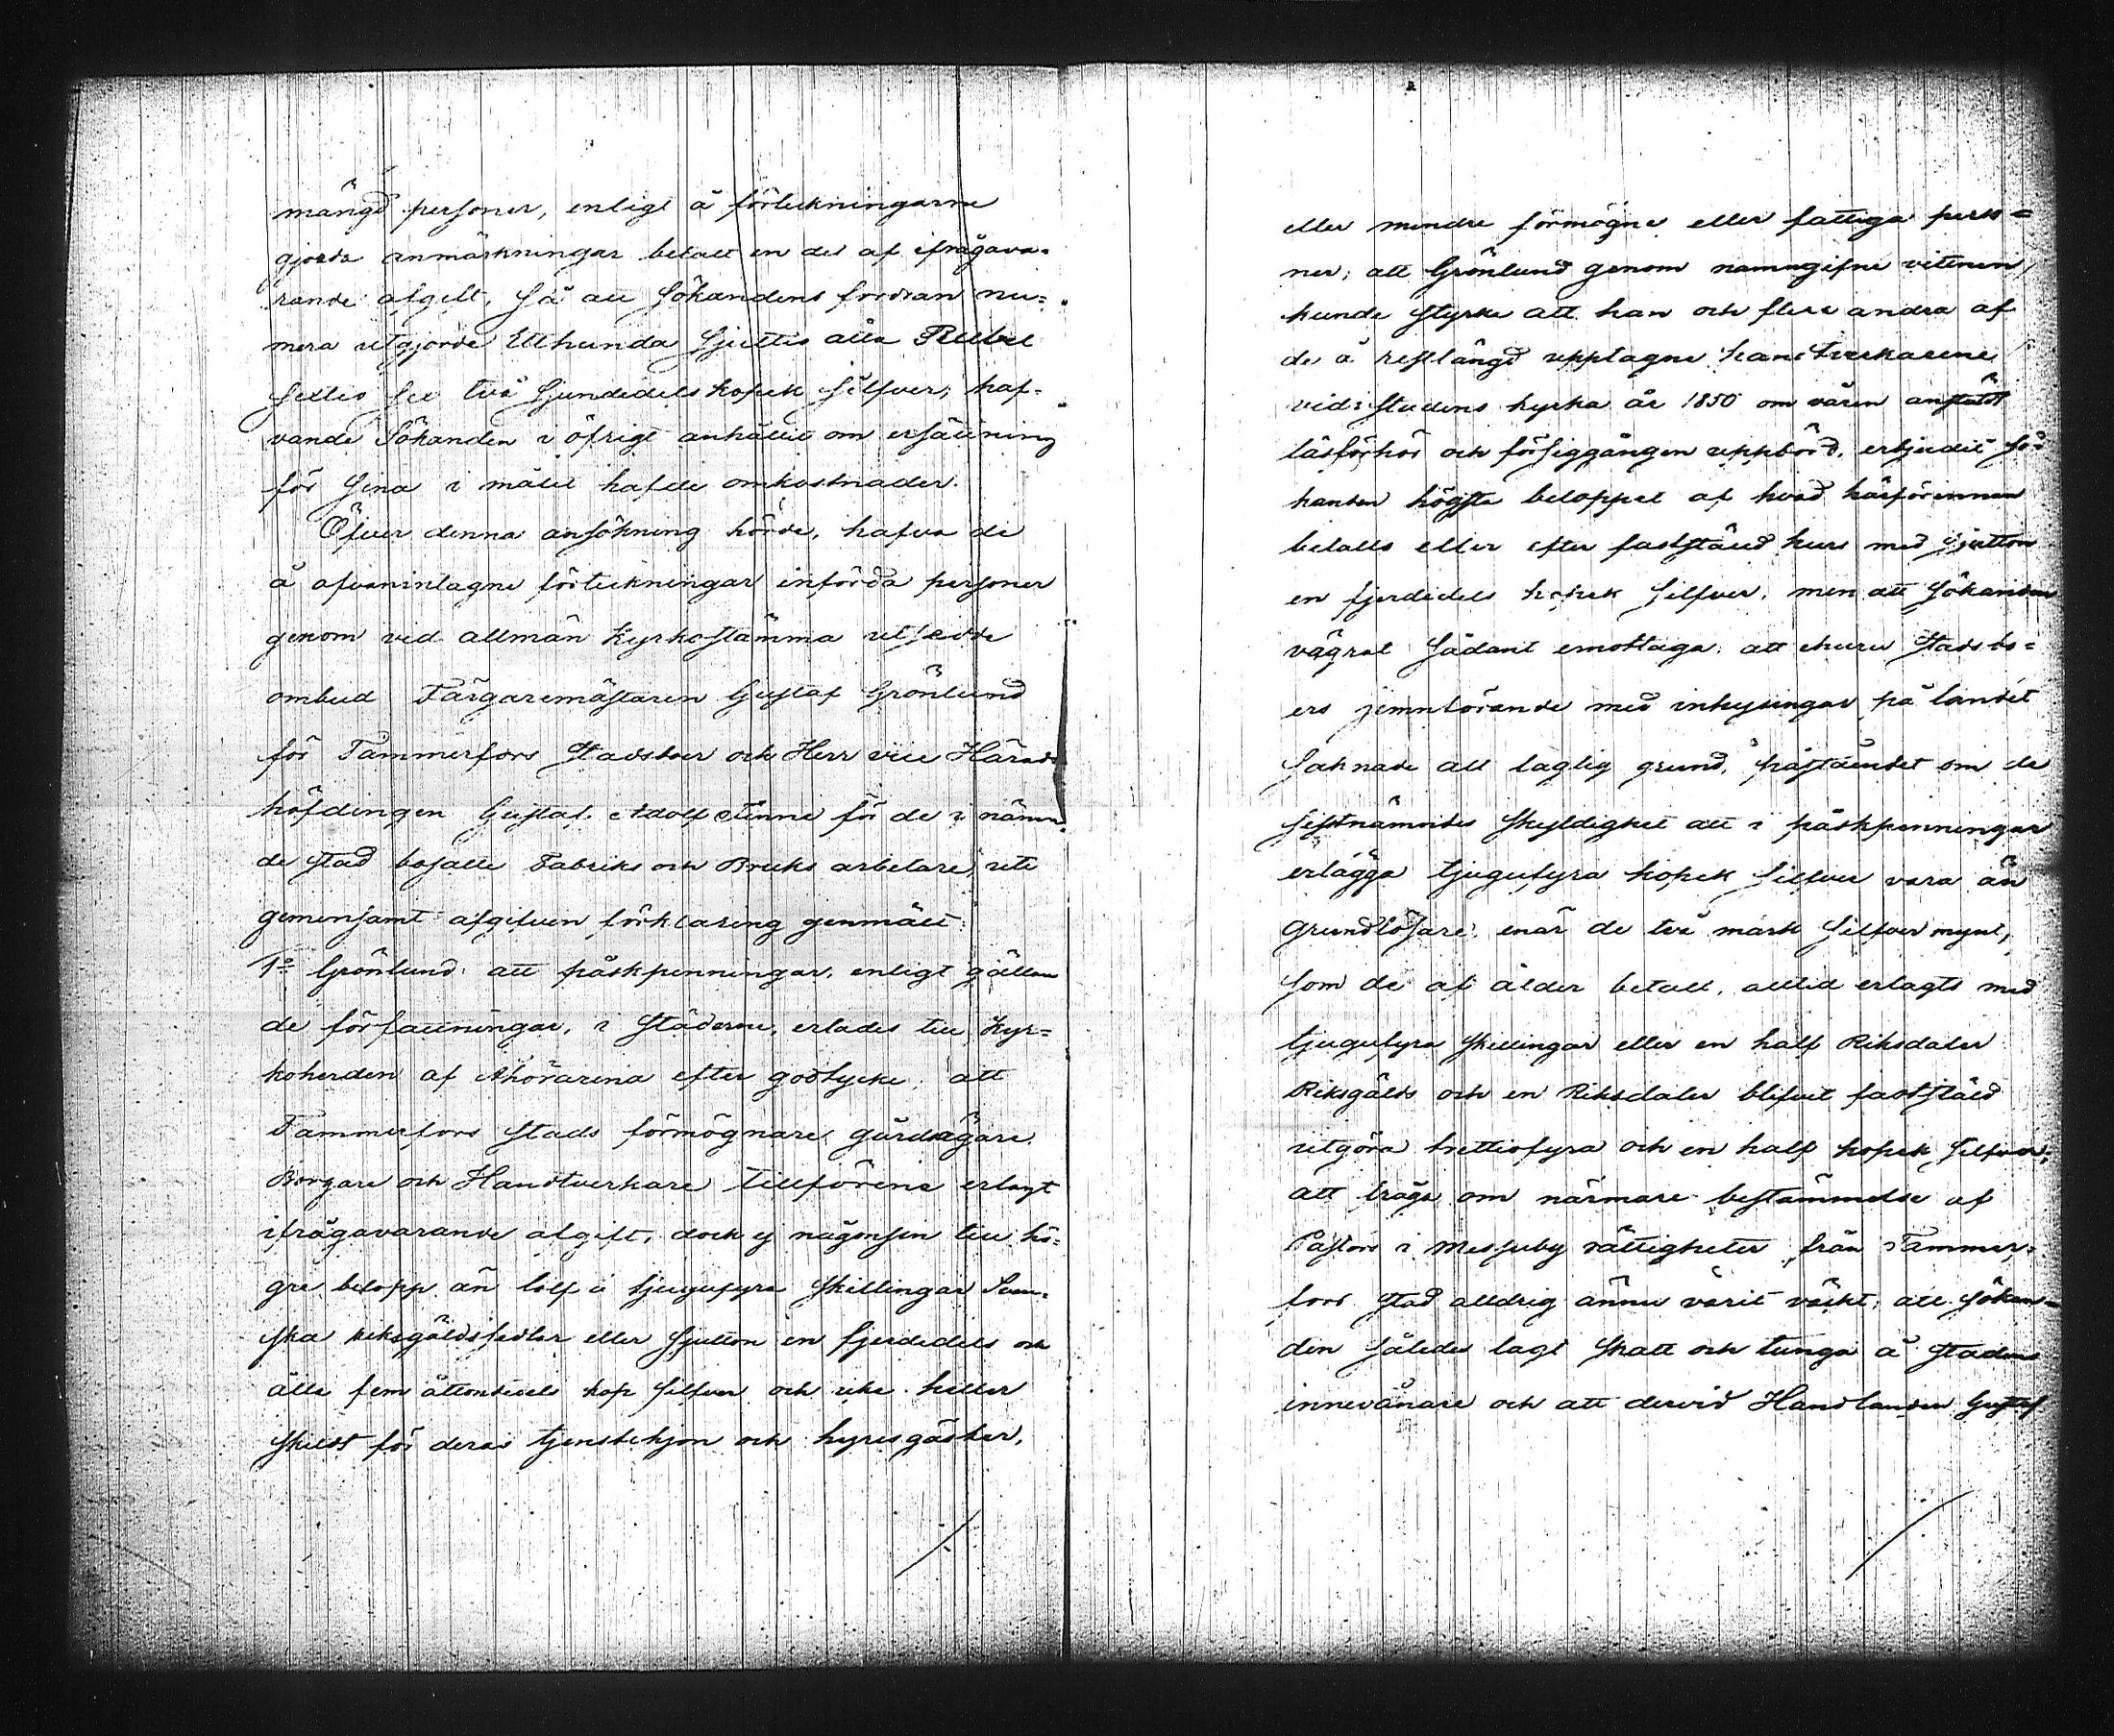 mängd personer, enligt å förteckningarne
gjorda anmärkningar betalt en del af ifrågava-
rande afgift, så att Sökandens fordran nu=
mera utgjorde Etthundra sjuttio åtta Rubel
sextio sex två sjundedels kopek silfver; haf-
vande Sökanden i öfrigt anhållit om ersättning
för sina i målet hafde omkostnader.
Öfver denna ansökning hörde, hafva de
å ofvanintagne förteckningar införda personer
genom vid allmän Kyrkostämma utsedde
ombud Färgaremästaren Gustaf Grönlund
för Tammerfors Stadsboer och Herr vice Härads
höfdingen Gustaf Adolf Finne för de i nämn
de stad bosatte Fabriks och Bruks arbetare, uti
gemensamt afgifven förklaring genmält:
1o Grönlund: att påskpenningar, enligt gällan
de författningar, i Städerne, erlades till Kyr=
koherden af Åhörarena efter godtycke; att
Tammerfors stads förmögnare gårdsägare,
Borgare och Handtverkare tillförene erlagt
ifrågavarande afgift, dock ej någonsin till hö-
gre belopp än tolf à tjugufyra skillingar Sven-
ska riksgäldssedlar eller sjutton en fjerdedels och
åtta fem åttondedels kop silfver och icke heller
skildt för deras tjenstehjon och hyresgäster,
eller mindre förmögne eller fattiga perso=
ner; att Grönlund genom namngifne vittnen,
kunde styrka att han och flere andra af
de å restlängd upptagne handtverkarene
vid Stadens kyrka år 1850 om våren anstäldt
läsförhör och försiggången uppbörd, erbjudit Sö-
kanden högsta beloppet af hvad härförinnan
betalts eller efter faststäld kurs med sjutton
en fjerdedels kopek silfver, men att Sökanden
vägrat sådant emottaga; att ehuru Stadsbo=
ers jemnförande med inhysingar på landet
saknade all laglig grund, påståendet om de
sistnämndes skyldighet att i påskpenningar
erlägga tjugufyra kopek silfver vara än
grundlösare, enär de två mark silfver mynt,
som de af ålder betalt, alltid erlagts med
tjugufyra skillingar eller en half Riksdaler
Riksgälds och en Riksdaler blifvit faststäld
utgöra trettiofyra och en half kopek silfver;
att fråga om närmare bestämmelse af
Pastors i Messuby rättigheter från Tammer-
fors stad alldrig ännu varit väckt; att Sökan=
den således lagt skatt och tunga å stadens
innevånare och att dervid Handlanden Gustaf